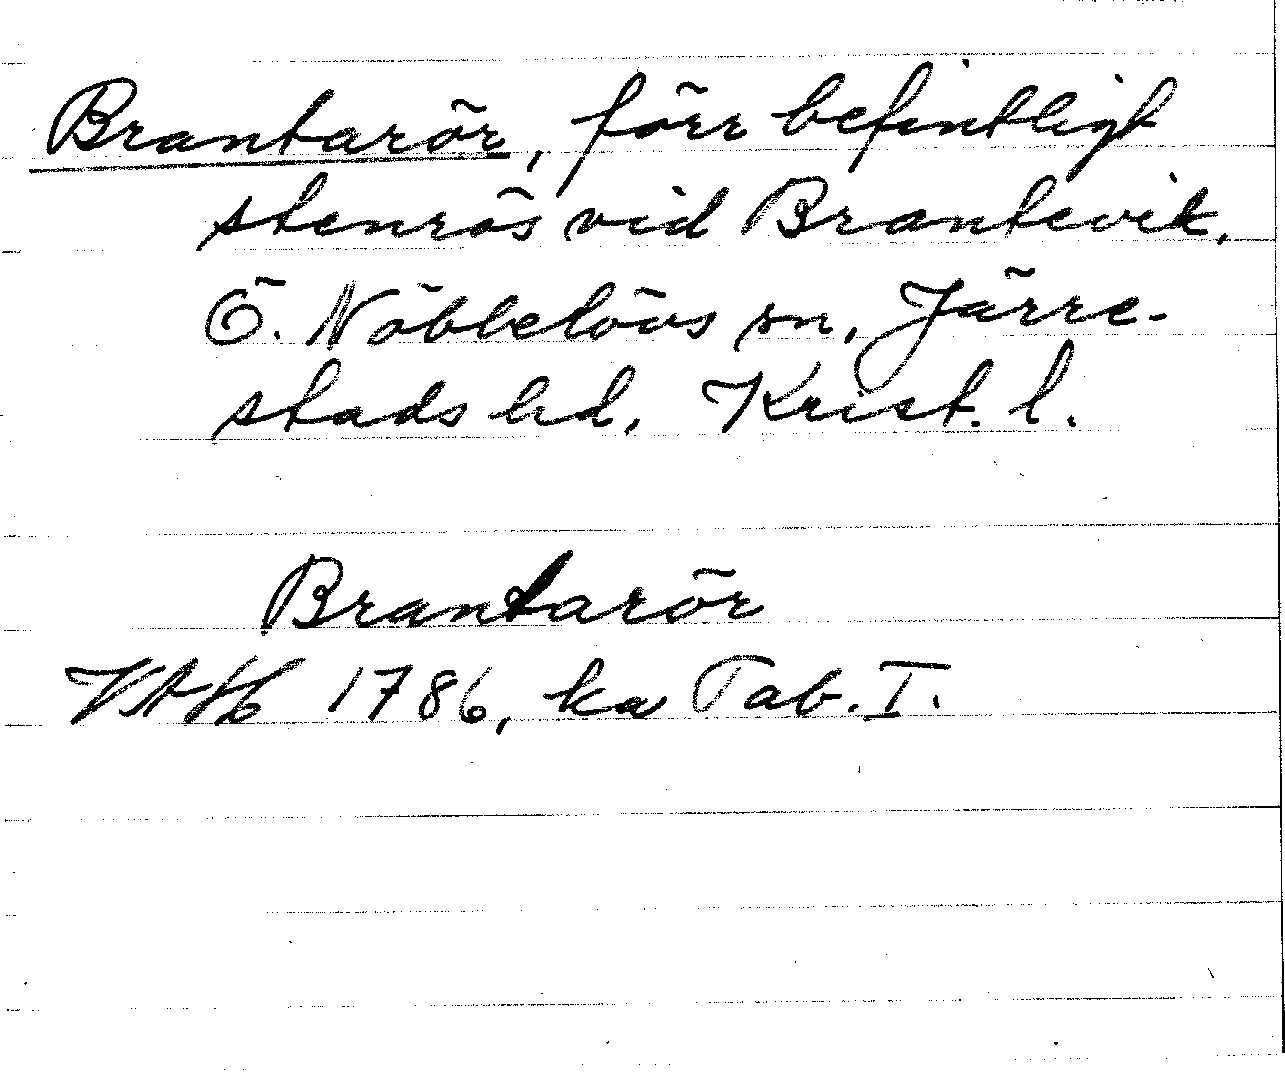 Brantarör, förr befintligt
stenrös vid Brantevik,
Ö. Nöbbelövs sn, Järre-
stads hd, Krist. l.
Brantarör
VAH 1786, ka Tab. I.